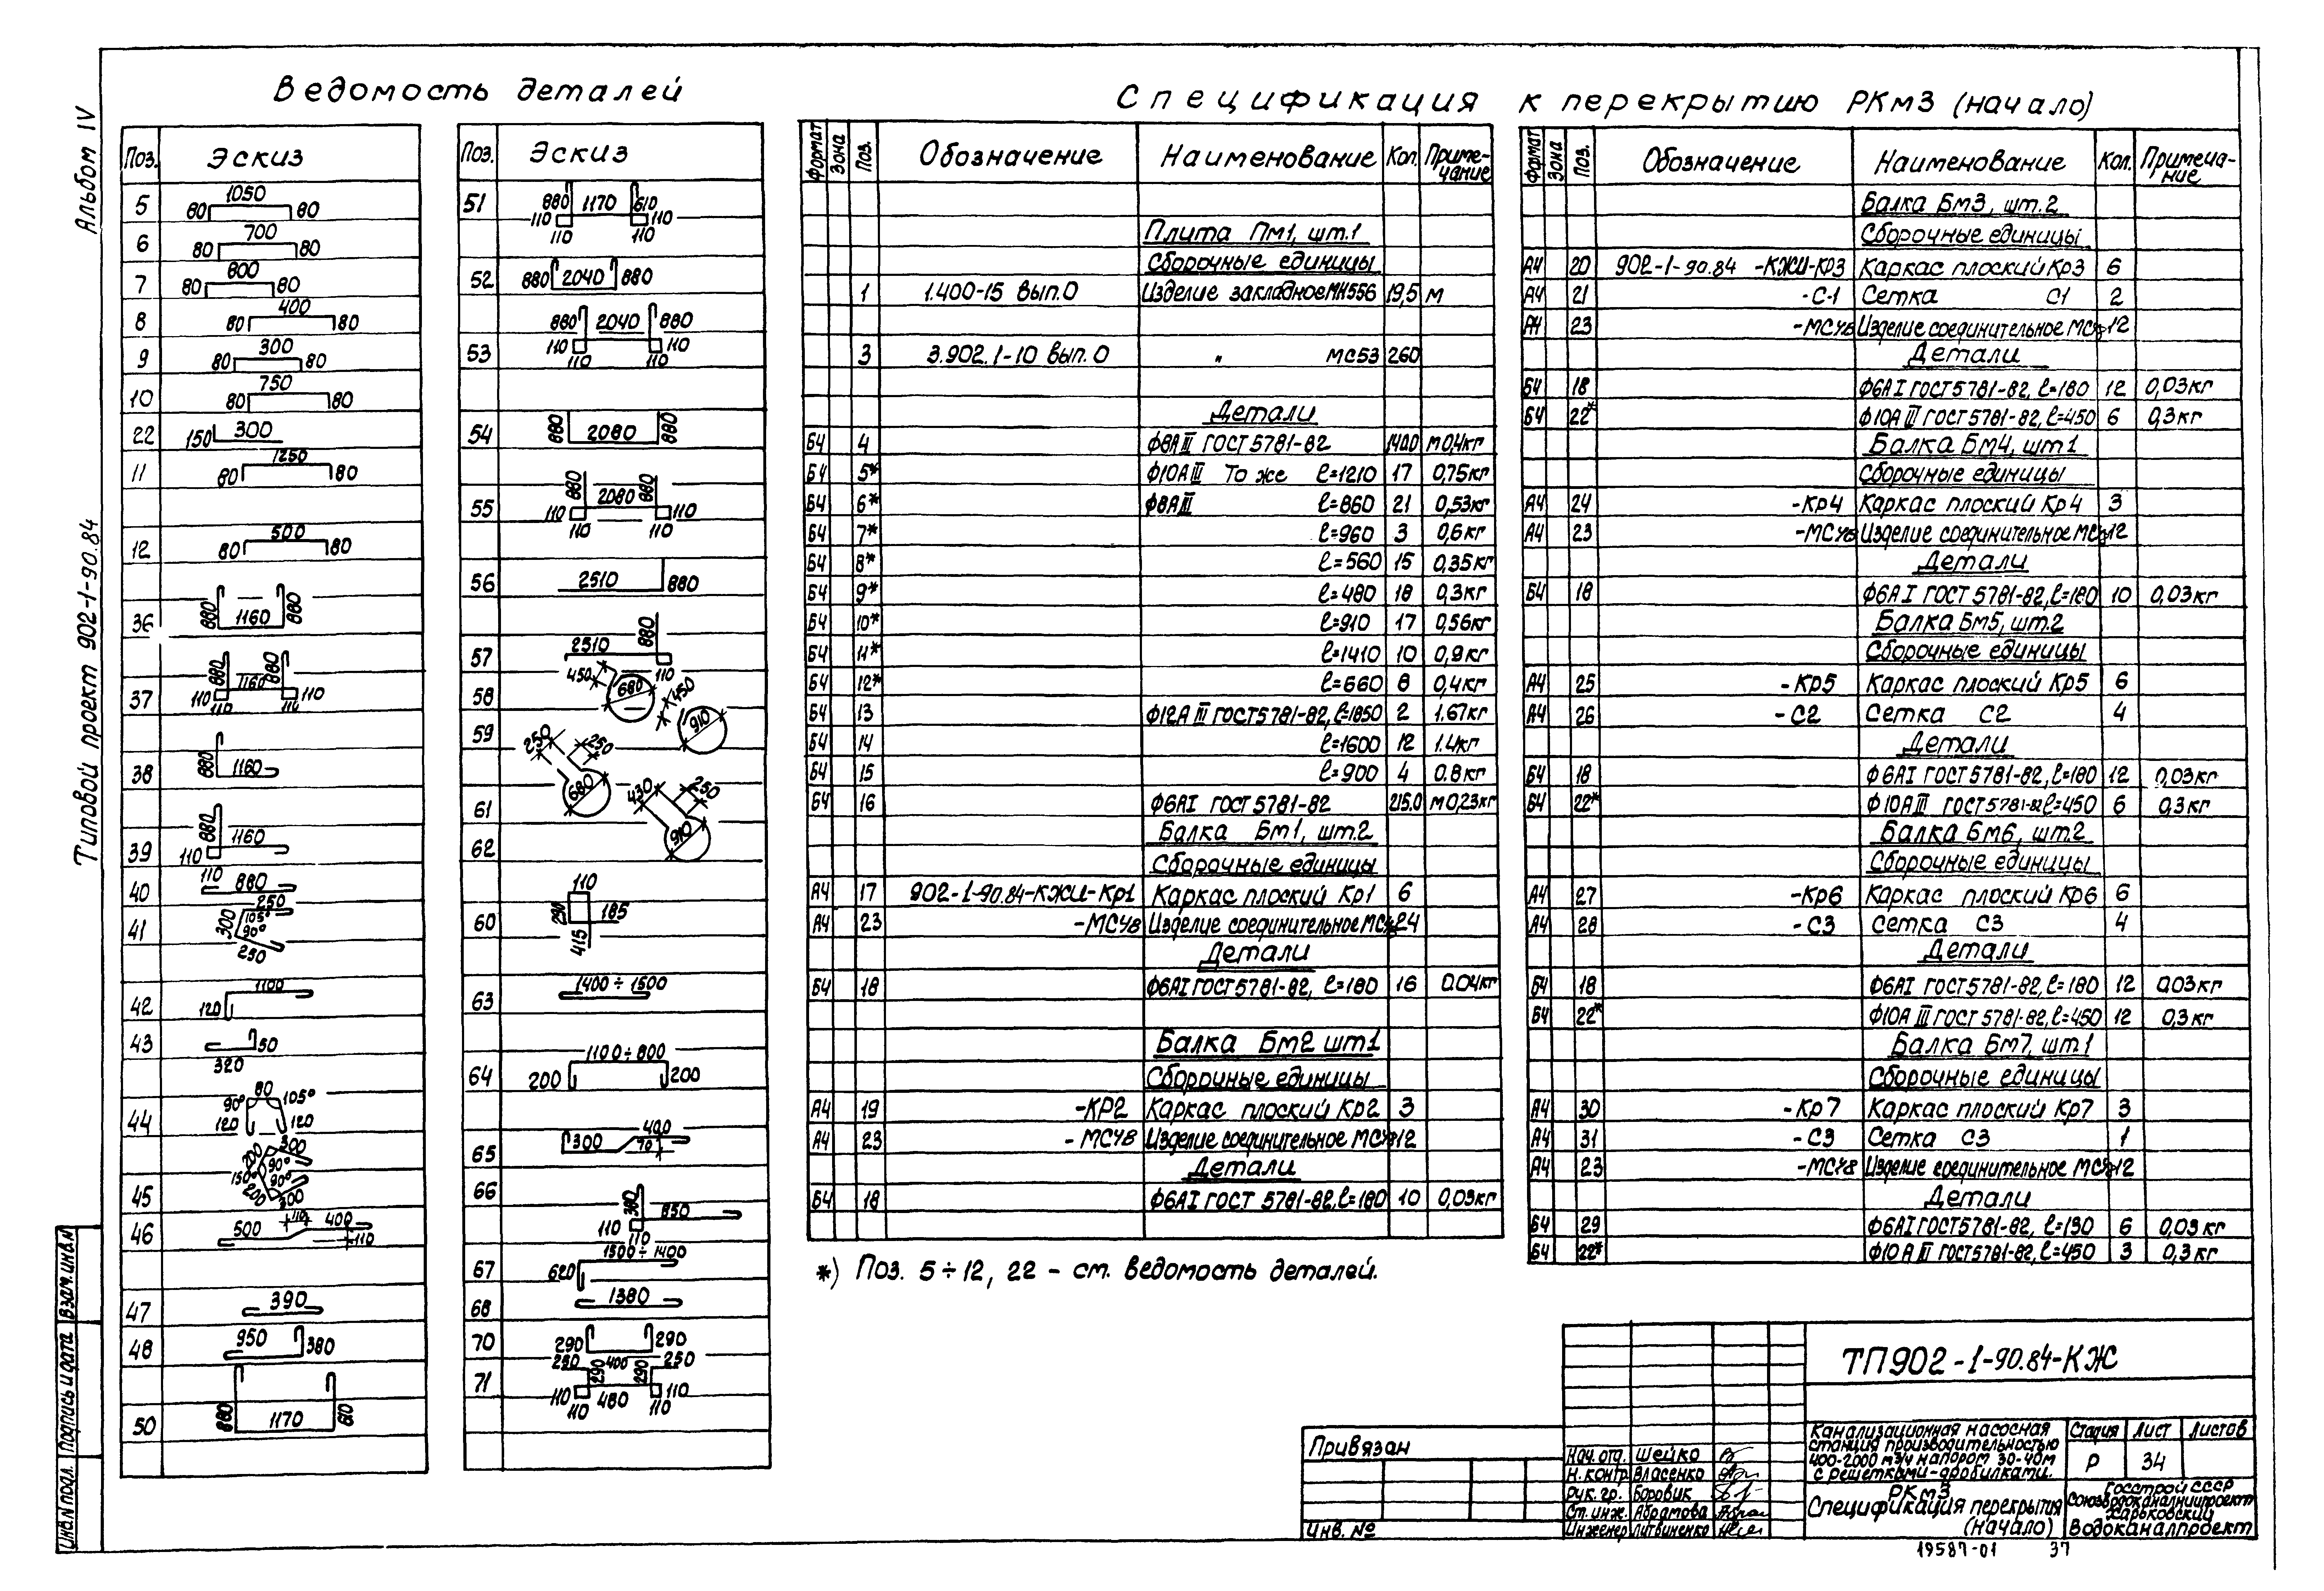 Альбом IV
Типовой проект 902-1-90.84
Ведомость деталей
Поз. Эскиз
5 1050 80 80
6 700 80 80
7 800 80 80
8 400 80 80
9 300 80 80
10 750 80 80
22 150 300
11 1250 80 80
12 500 80 80
36 880 1160 880
37 880 1160 880 110 110 110 110
38 880 1160
39 880 1160 110 110
40 880
41 250 300 105° 90° 250
42 1100 120
43 50 320
44 80 90° 105° 120 120
45 200 300 90° 150° 90° 200 300
46 500 110 400 110
47 390
48 950 380
50 880 1170 610
Поз. Эскиз
51 880 1170 610 110 110 110 110
52 880 2040 880
53 880 2040 880 110 110 110 110
54 880 2080 880
55 880 2080 880 110 110 110 110
56 2510 880
57 2510 880 110
58 450 680
59 450 910
61 250 250 680
62 430 250 910
60 110 290 185 415
63 1400÷1500
64 1100÷800 200 200
65 300 400 70
66 380 850 110 110
67 1500÷1400 620
68 1380
70 290 290
71 250 290 400 290 250 110 480 110 110 110
Спецификация к перекрытию РКм3 (начало)
Формат Зона Поз. Обозначение Наименование Кол. Примечание
Плита Пм1, шт.1
Сборочные единицы
1 1.400-15 вып.0 Изделие закладное МН556 19,5 м
3 3.902.1-10 вып.0 " МС53 260
Детали
БЧ 4 Ф8АIII ГОСТ 5781-82 1400 м 0,4кг
БЧ 5* Ф10АIII То же ℓ=1210 17 0,75кг
БЧ 6* Ф8АIII ℓ=860 21 0,53кг
БЧ 7* ℓ=960 3 0,6кг
БЧ 8* ℓ=560 15 0,35кг
БЧ 9* ℓ=480 18 0,3кг
БЧ 10* ℓ=910 17 0,56кг
БЧ 11* ℓ=1410 10 0,9кг
БЧ 12* ℓ=660 8 0,4кг
БЧ 13 Ф12АIII ГОСТ 5781-82, ℓ=1850 2 1.67кг
БЧ 14 ℓ=1600 12 1.4кг
БЧ 15 ℓ=900 4 0.8кг
БЧ 16 Ф6АI ГОСТ 5781-82 215.0 м 0,23кг
Балка Бм1, шт.2
Сборочные единицы
А4 17 902-1-90.84-КЖИ-Кр1 Каркас плоский Кр1 6
А4 23 -МС48 Изделие соединительное МС48 24
Детали
БЧ 18 Ф6АI ГОСТ 5781-82, ℓ=180 16 0.04кг
Балка Бм2 шт1
Сборочные единицы
А4 19 -КР2 Каркас плоский Кр2 3
А4 23 -МС48 Изделие соединительное МС48 12
Детали
БЧ 18 Ф6АI ГОСТ 5781-82, ℓ=180 10 0,03кг
*) Поз. 5÷12, 22 - см. ведомость деталей.
Формат Зона Поз. Обозначение Наименование Кол. Примечание
Балка Бм3, шт.2
Сборочные единицы
А4 20 902-1-90.84 -КЖИ-КР3 Каркас плоский Кр3 6
А4 21 -С-1 Сетка С1 2
А4 23 -МС48 Изделие соединительное МС48 12
Детали
БЧ 18 Ф6АI ГОСТ 5781-82, ℓ=180 12 0,03кг
БЧ 22* Ф10АIII ГОСТ 5781-82, ℓ=450 6 0,3кг
Балка Бм4, шт1
Сборочные единицы
А4 24 -Кр4 Каркас плоский Кр4 3
А4 23 -МС48 Изделие соединительное МС48 12
Детали
БЧ 18 Ф6АI ГОСТ 5781-82, ℓ=180 10 0,03кг
Балка Бм5, шт.2
Сборочные единицы
А4 25 -Кр5 Каркас плоский Кр5 6
А4 26 -С2 Сетка С2 4
Детали
БЧ 18 Ф6АI ГОСТ 5781-82, ℓ=180 12 0,03кг
БЧ 22* Ф10АIII ГОСТ 5781-82 ℓ=450 6 0,3кг
Балка Бм6, шт.2
Сборочные единицы
А4 27 -Кр6 Каркас плоский Кр6 6
А4 28 -С3 Сетка С3 4
Детали
БЧ 18 Ф6АI ГОСТ 5781-82, ℓ=180 12 0.03кг
БЧ 22* Ф10АIII ГОСТ 5781-82, ℓ=450 12 0,3кг
Балка Бм7, шт.1
Сборочные единицы
А4 30 -Кр7 Каркас плоский Кр7 3
А4 31 -С3 Сетка С3 1
А4 23 -МС48 Изделие соединительное МС48 12
Детали
БЧ 29 Ф6АI ГОСТ 5781-82, ℓ=130 6 0,03кг
БЧ 22* Ф10АIII ГОСТ 5781-82, ℓ=450 3 0,3кг
ТП902-1-90.84-КЖ
Привязан
Инв. №
Нач. отд. Шейко
Н. контр. Власенко
Рук. гр. Боровик
Ст. инж. Абрамова
Инженер Литвиненко
Канализационная насосная
станция производительностью
400-2000 м3/ч напором 30-40м
с решетками-дробилками.
Стадия Лист Листов
Р 34
РКм3
Спецификация перекрытия
(начало)
Госстрой СССР
Союзводоканалниипроект
Харьковский
Водоканалпроект
19587-01 37
Взам. инв. №
Подпись и дата
Инв. № подл.